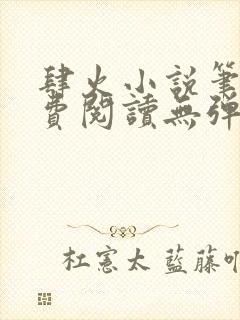 肆火小說筆
費閱讀無彈
杜憲太 藍藤吖